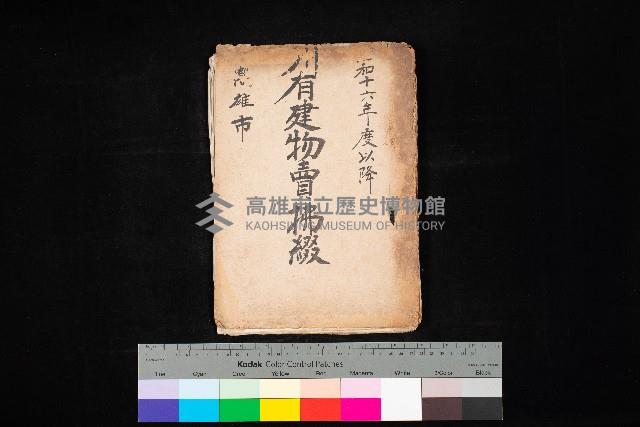 和十六年度以降
有建物賣拂綴
雄市
高雄市立歷史博物館
KAOHSIUNG MUSEUM OF HISTORY
Kodak Color Control Patches
Cyan
Yellow
Red
Magenta
White
3/Color
Black